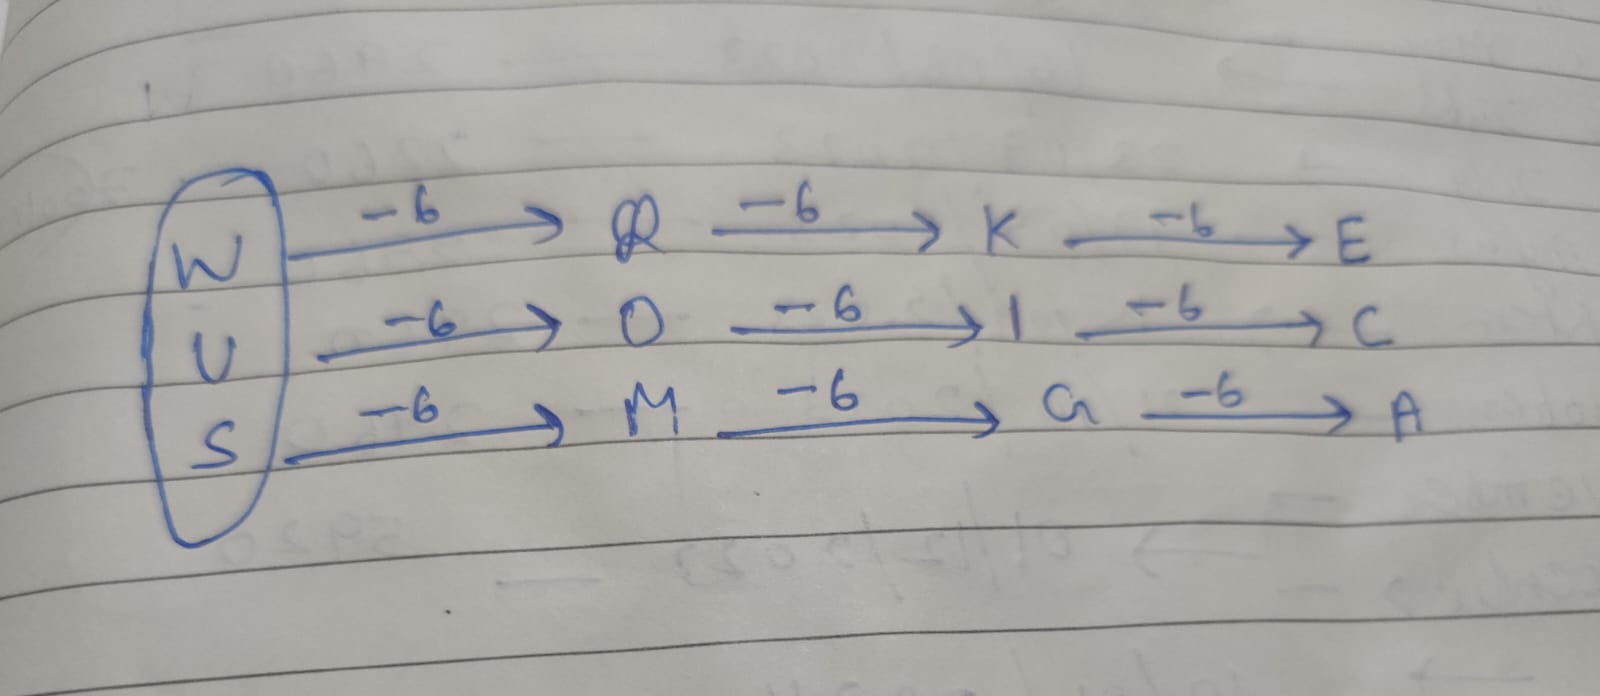 W -6→ Q -6→ K -6→ E
U -6→ O -6→ I -6→ C
S -6→ M -6→ G -6→ A